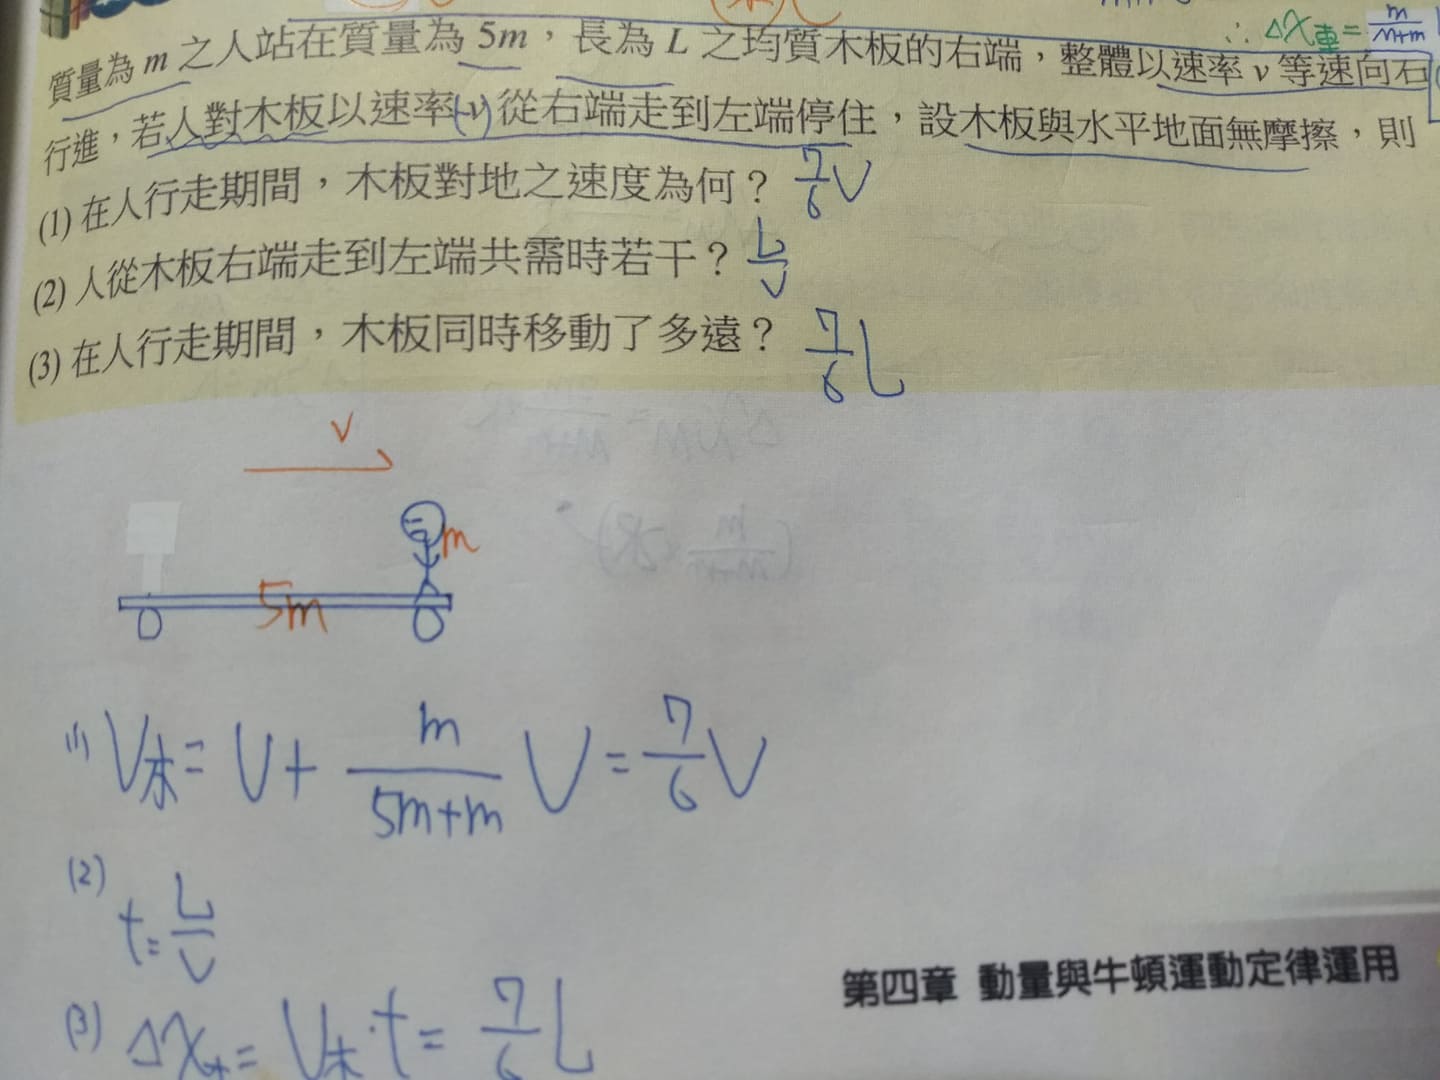 ∴ Δx車 = m/M+m
質量為 m 之人站在質量為 5m，長為 L 之均質木板的右端，整體以速率 v 等速向右
行進，若人對木板以速率(-v)從右端走到左端停住，設木板與水平地面無摩擦，則
(1) 在人行走期間，木板對地之速度為何？ 7/6 V
(2) 人從木板右端走到左端共需時若干？ L/V
(3) 在人行走期間，木板同時移動了多遠？ 7/6 L
V
m
5m
(1) V木 = V + m/5m+m V = 7/6 V
(2) t = L/V
第四章 動量與牛頓運動定律運用
(3) Δx木 = V木·t = 7/6 L